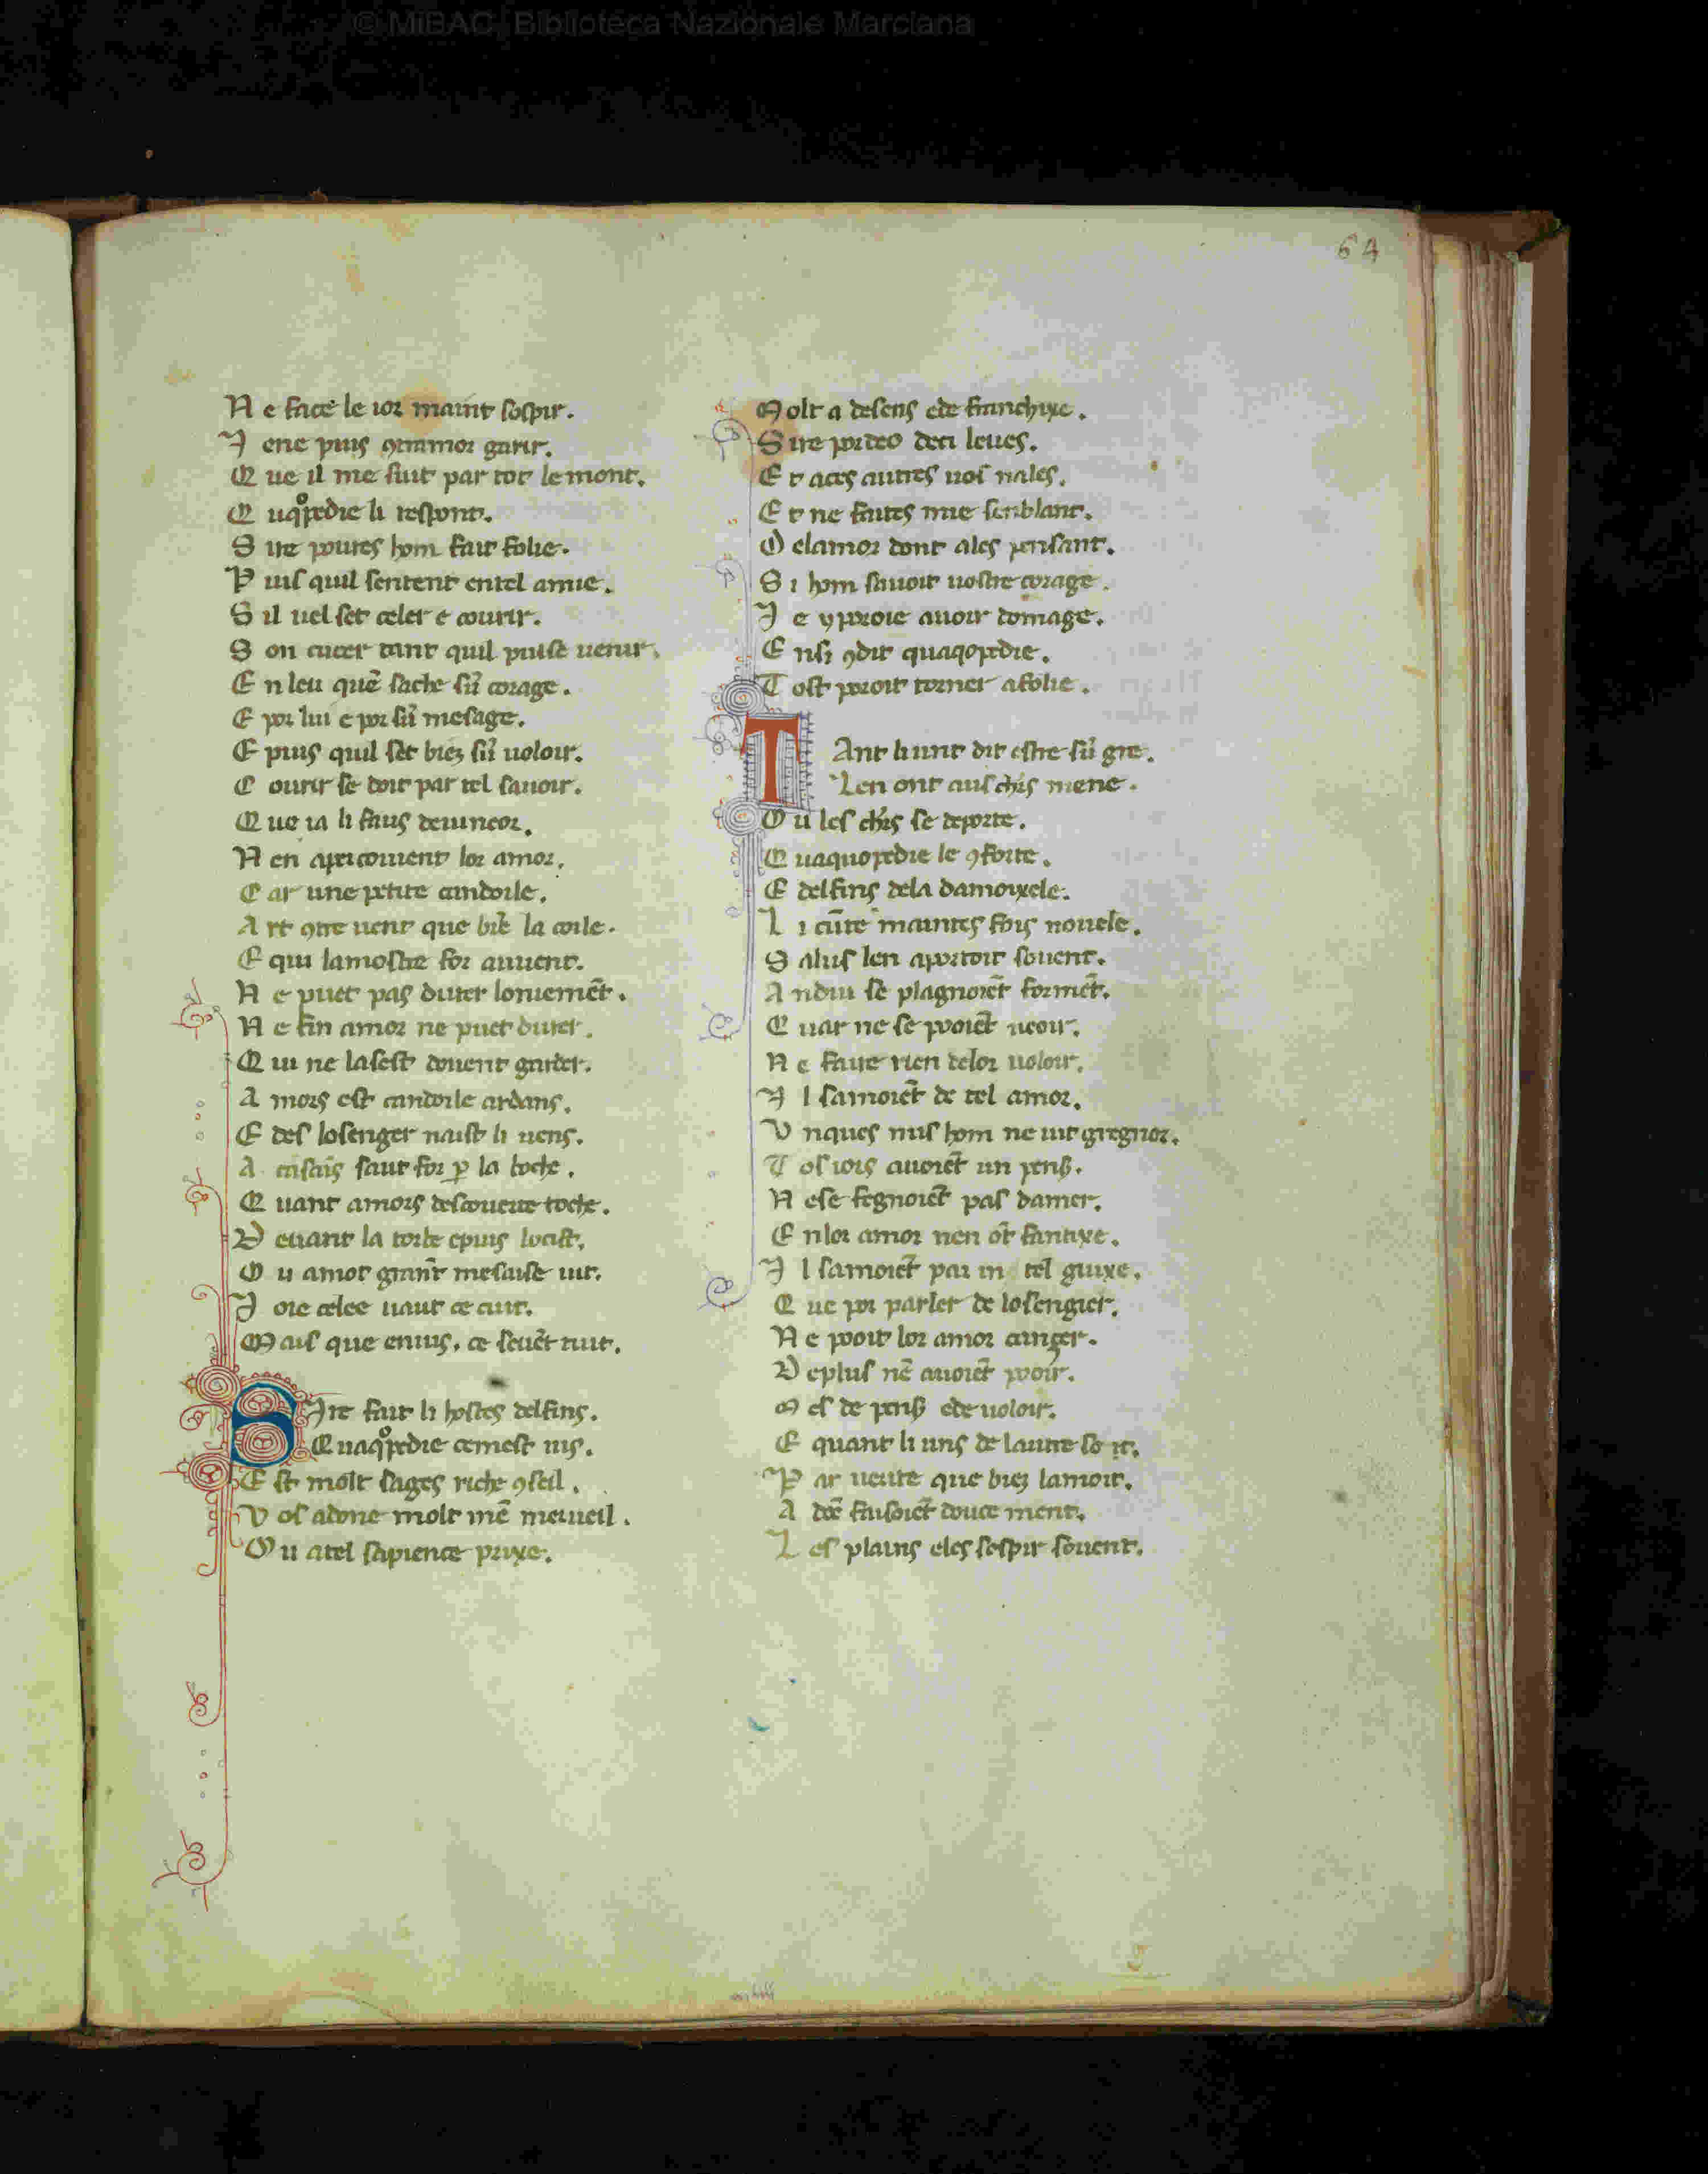 © MiBAC, Biblioteca Nazionale Marciana
64
N e face le ior maint sospir.
J ene puis ꝯtramor garir.
Q ue il me suit par tot le mont.
Q uqͦpedie li respont.
S ire poures hom fait folie.
P uis quil sentent entel amie.
S il uel set celer e courir.
S on cucer tant quil puise uenir.
E n leu quē sache sū corage.
E por lui e por sū mesage.
E puis quil set biez sū uoloir.
C ourir se doit par tel sauoir.
Q ue ia li faus deuineor.
N en aperiouient lor amor.
C ar une petite candoile.
A rt ꝯtre uent que bñ la coile.
E qui lamostre for auuent.
N e puet pas durer loniemēt.
N e fin amor ne puet durer.
Q ui ne lasest couent garder.
A mors est candoile ardans.
E des losenger naist li uens.
A saut for ꝑ la boche.
Q uant amors descouerte toche.
D euant la torbe epuis locist.
O u amor grant mesaise uit.
J oie celee uaut ce cuit.
M ais que enuis. ce seuēt tuit.
S Jre fait li hostes delfins.
Q uaqͦpedie cemest uis.
E st molt sages riche ꝯseil.
V os adone molt mē merueil.
O u atel sapience prixe.
M olt a desens ede franchixe.
S ire pordeo deci leues.
E t aces autres uos nales.
E t ne faites mie senblant.
D elamor dont ales pensant.
S i hom sauoit uostre corage.
J e yporoie auoir domage.
E nsi ꝯdit quaqopedie.
T ost poroit torner afolie.
T Ant li unt dit estre sū gre.
Len ont aus chās mene.
O u les chrs se deporte.
Q uaquopedie le ꝯforte.
E delfins dela damoixele.
L i cūte maintes fois nouele.
S alus len aportoit souent.
A ndui se plagnoiēt formēt.
Q uar ne se pooiēt ueoir.
N e faire rien delor uoloir.
J l samoiēt de tel amor.
V nques nus hom ne uit gregnor.
T os iors auoiēt un pens.
N ese fegnoiēt pas damer.
E nlor amor nen ot fantixe.
J l samoiēt par in tel guixe.
Q ue por parler de losengier.
N e pooit lor amor canger.
D eplus nē auoiēt pooir.
M es de pens ede uoloir.
E quant li uns de lautre so it.
P ar uerite que biez lamoit.
A dōc faisoiēt douce ment.
L es plains eles sospir souent.